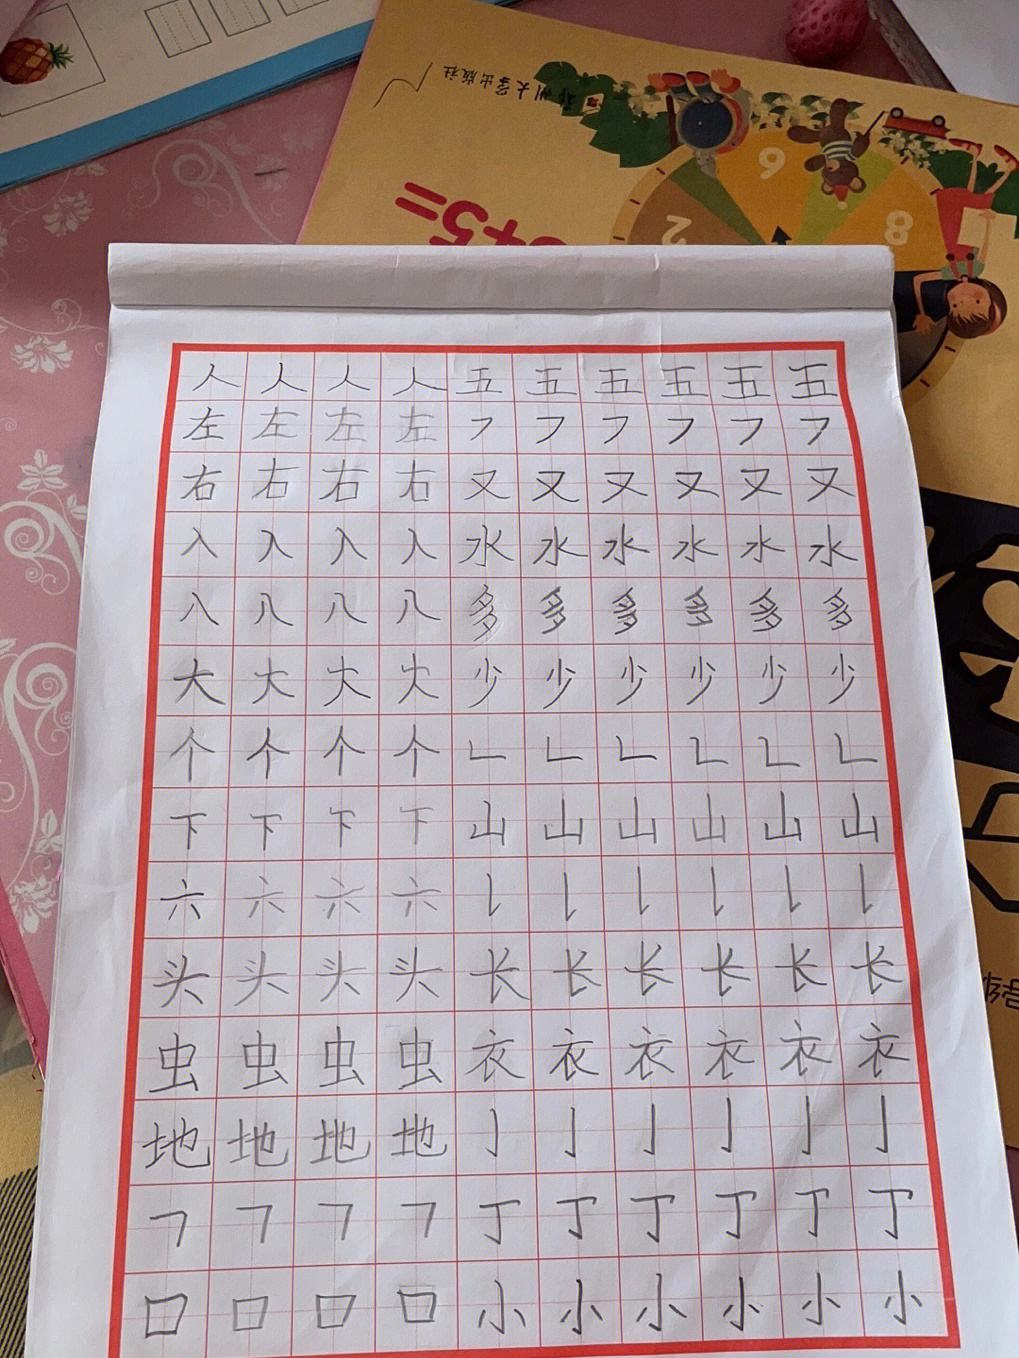 郑州大学出版社
6
2
8
+5=
人人人人五五五五五五
左左左左フフフフフフ
右右右右又又又又又又
入入入入水水水水水水
八八八八多多多多多多
大大大大少少少少少少
个个个个𠃊𠃊𠃊𠃊𠃊𠃊
下下下下山山山山山山
六六六六𠄌𠄌𠄌𠄌𠄌𠄌
头头头头长长长长长长
虫虫虫虫衣衣衣衣衣衣
地地地地亅亅亅亅亅亅
𠃍𠃍𠃍𠃍丁丁丁丁丁丁
口口口口小小小小小小